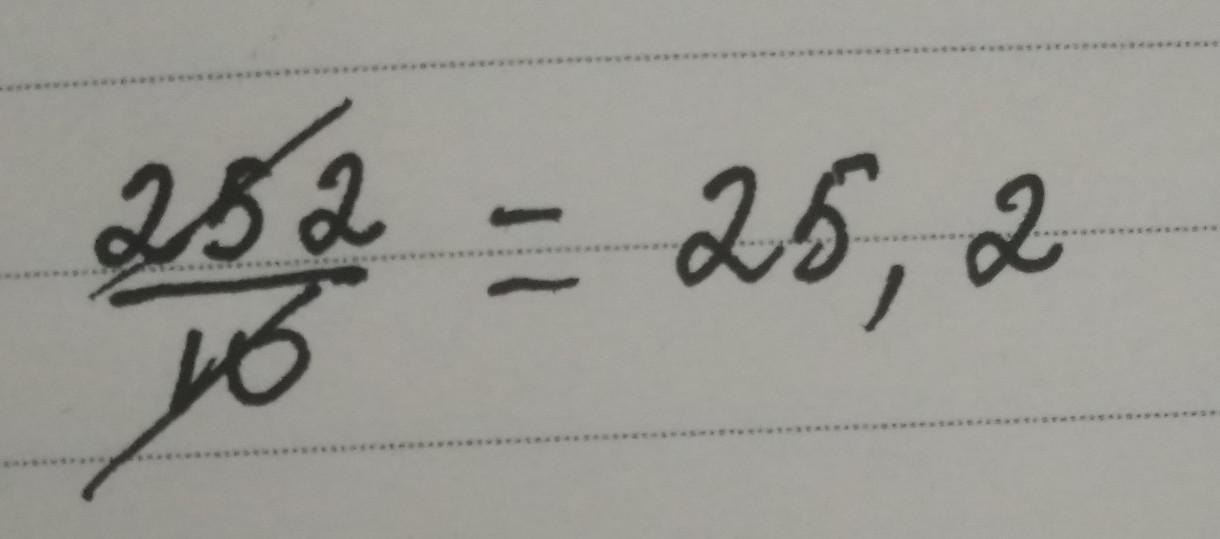 252/10 = 25,2